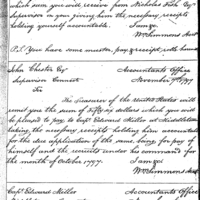 which sum you will receive from Nicholas Fish Esqr
Supervisor in your giving him the necessary receipts
holding yourself accountable. I am &c
Wm Simmons Acct
P.S. You have one muster, pay & receipt rolls
John Chester Esqr Accountants Office
Supervisor Connectt November 7th 1797
Sir
The Treasurer of the United States will
remit you the sum of Fifty six dollars which you will
be pleased to pay to Capt Edward Miller at Middletown
taking the necessary receipts holding him accountable
for the due application of the same being for pay of
himself and the recruits under his command for
the month of October 1797. I am &c
Wm Simmons Acct
Capt Edward Miller Accountants Office